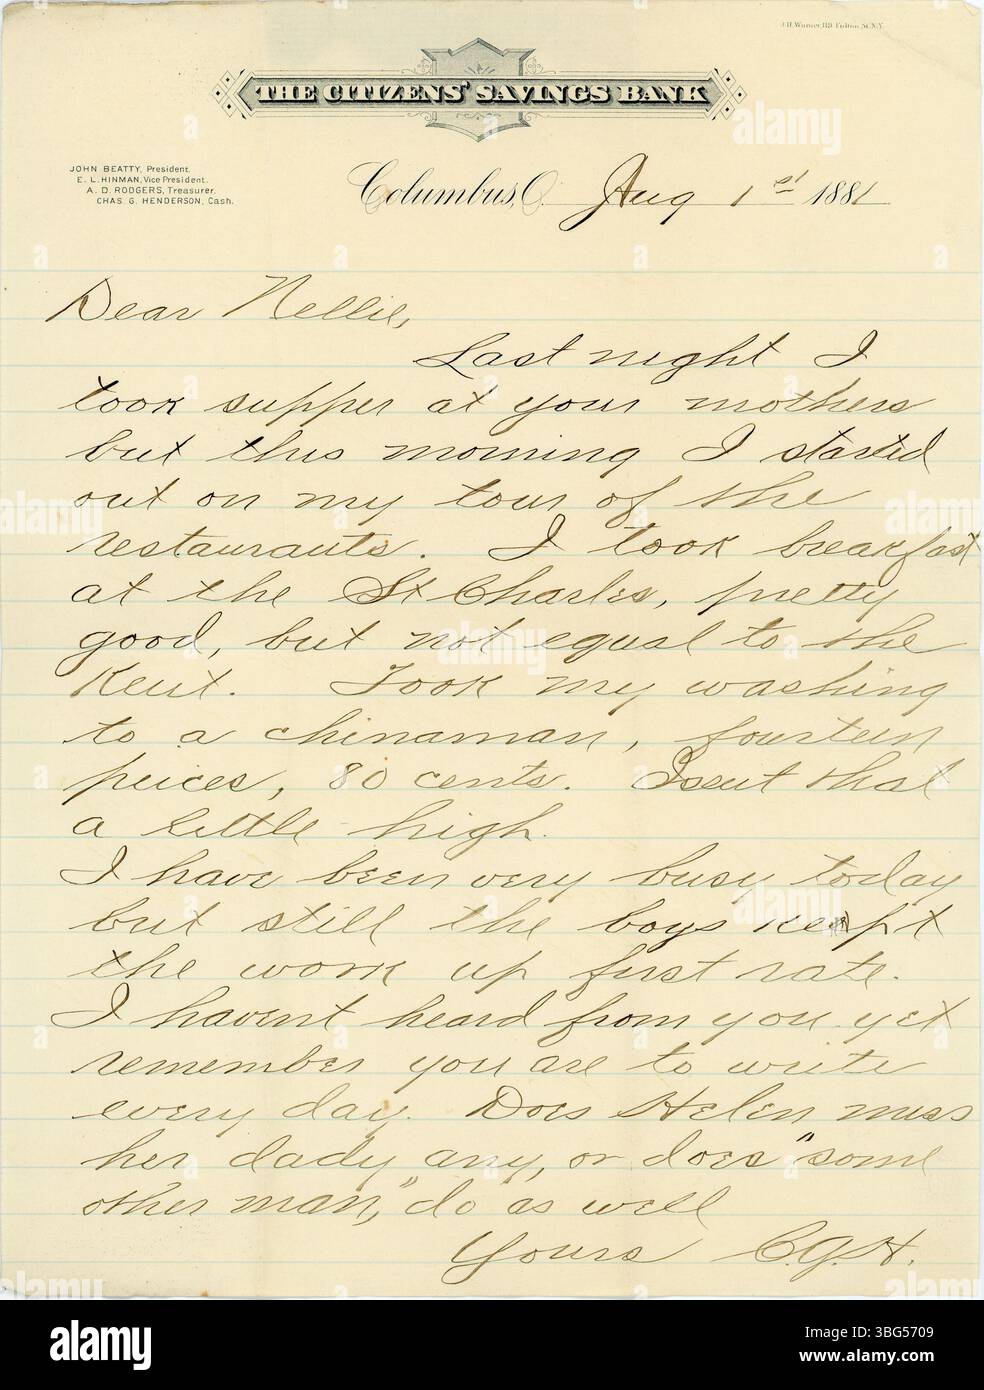 J.H. Warner, 119 Fulton St. N.Y.
THE CITIZENS' SAVINGS BANK
JOHN BEATTY, President.
E. L. HINMAN, Vice President.
A. D. RODGERS, Treasurer.
CHAS. G. HENDERSON, Cash.
Columbus, O. Aug 1st 1881
Dear Nellie,
Last night I
took supper at your mothers
but this morning I started
out on my tour of the
restaurants. I took breakfast
at the St Charles, pretty
good, but not equal to the
Kent. Took my washing
to a chinaman, fourteen
peices, 80 cents. Isent that
a little high.
I have been very busy today
but still the boys kept
the work up first rate.
I havent heard from you yet
remember you are to write
every day. Does Helen miss
her dady any, or does "some
other man," do as well
Yours C.G.H.
alamy
Image ID: 3BG5709
www.alamy.com